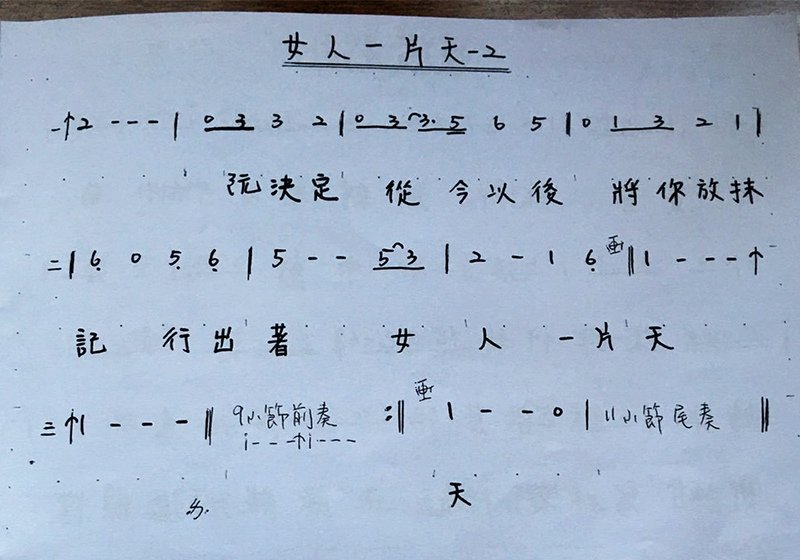 女人一片天-2
一↑2 - - - | 0 3 3 2 | 0 3 3· 5 6 5 | 0 1 3 2 1 |
阮決定 從今以後 將你放抹
二 | 6̣ 0 5̣ 6̣ | 5 - - 5 3 | 2 - 1 6̣ 画 || 1 - - - ↑
記 行出著 女人一片天
三 ↑1 - - - || 9小節前奏 :|| 画 1 - - 0 | 11小節尾奏 ||
i - - - ↑ i - - -
天